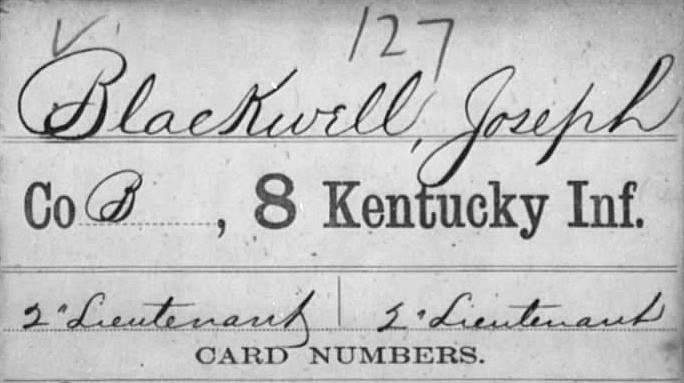 127
Blackwell, Joseph
Co B, 8 Kentucky Inf.
2" Lieutenant | 2" Lieutenant
CARD NUMBERS.